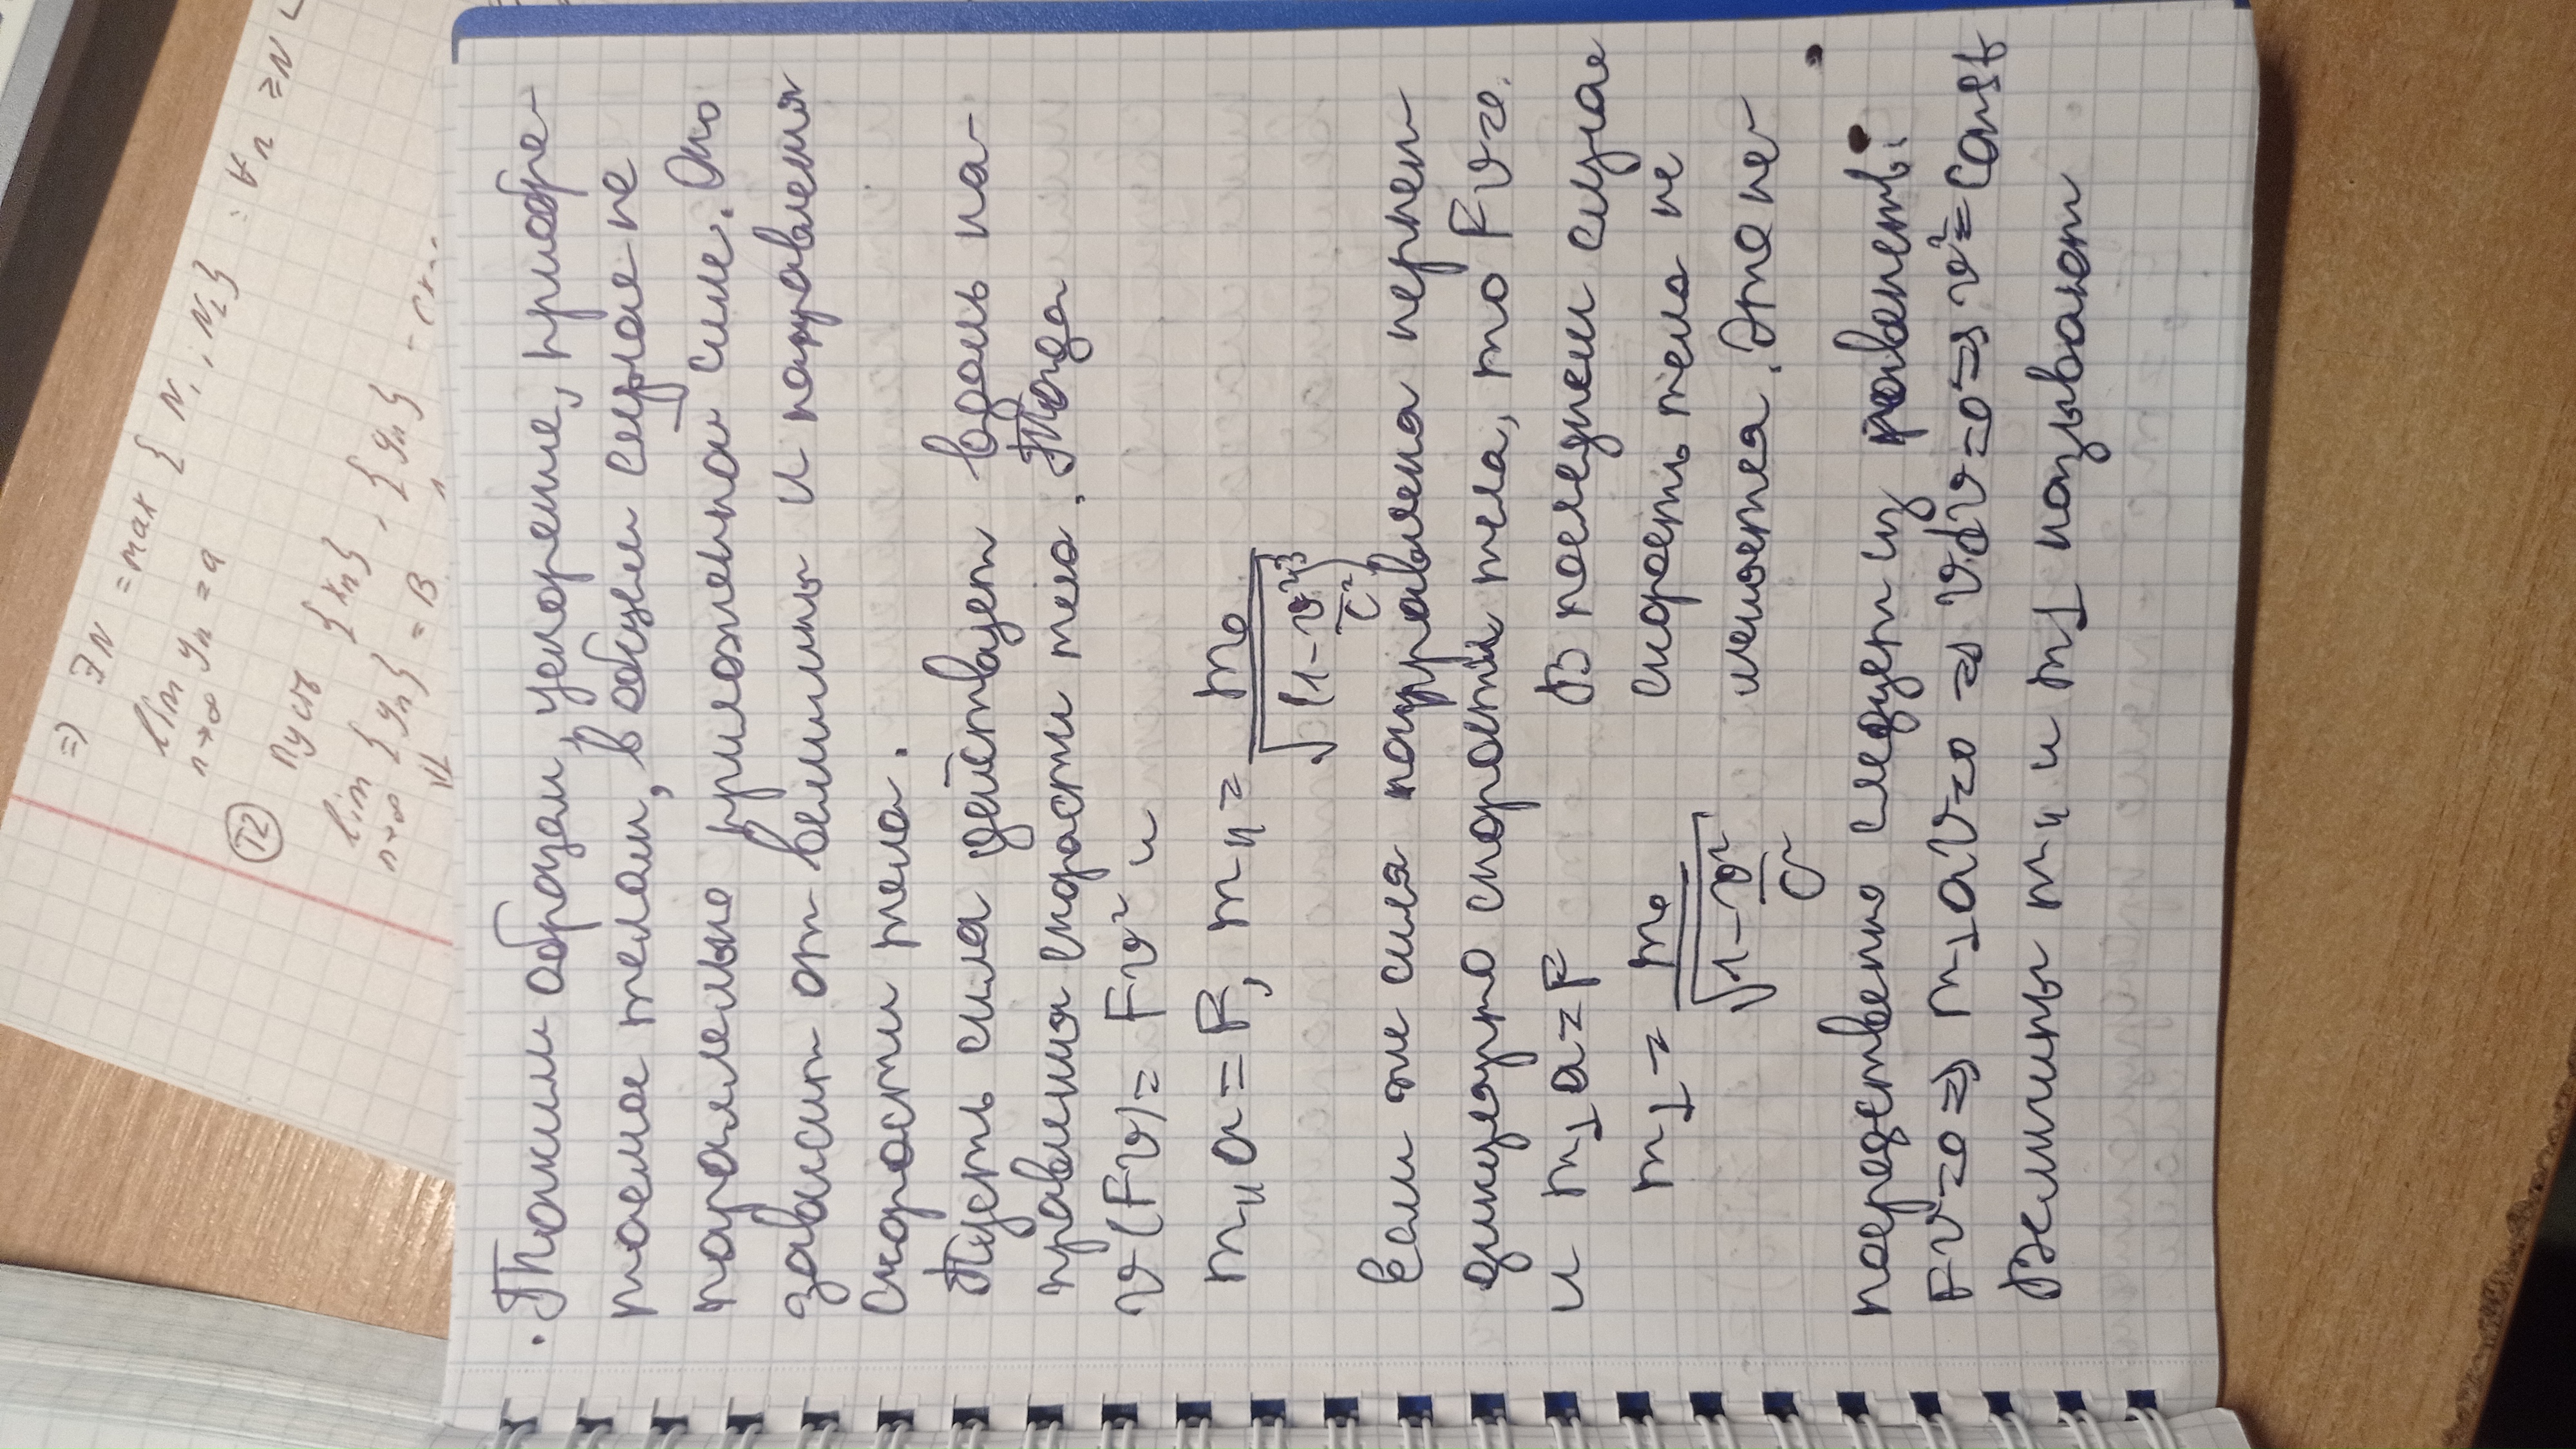 ⇒ ∃N = max { N₁ ; N₂ } : ∀n ≥ N
lim yₙ = a
n→∞
T2 Пусть {xₙ}, {yₙ}
lim {yₙ} = B
n→∞
· Таким образом, ускорение, приобре-
таемое телом, в общем случае не
паралельно приложенной силе. Оно
зависит от величины и направления
скорости тела.
Пусть сила действует вдоль на-
правления скорости тела. Тогда
v(Fv) = Fv² и
m₁₁a = F, m₁₁ = m₀/√(1-v²/c²)³
Если же сила направлена перпен
дикулярно скорости тела, то Fv=0.
и m⊥a=F В последнем случае
m⊥ = m₀/√1-v²/c² скорость тела не
меняется. Это не
посредственно следует из равенств:
Fv=0 ⇒ m⊥av=0 ⇒ v·dv=0 ⇒ v²=const
Величины m₁₁ и m⊥ называют